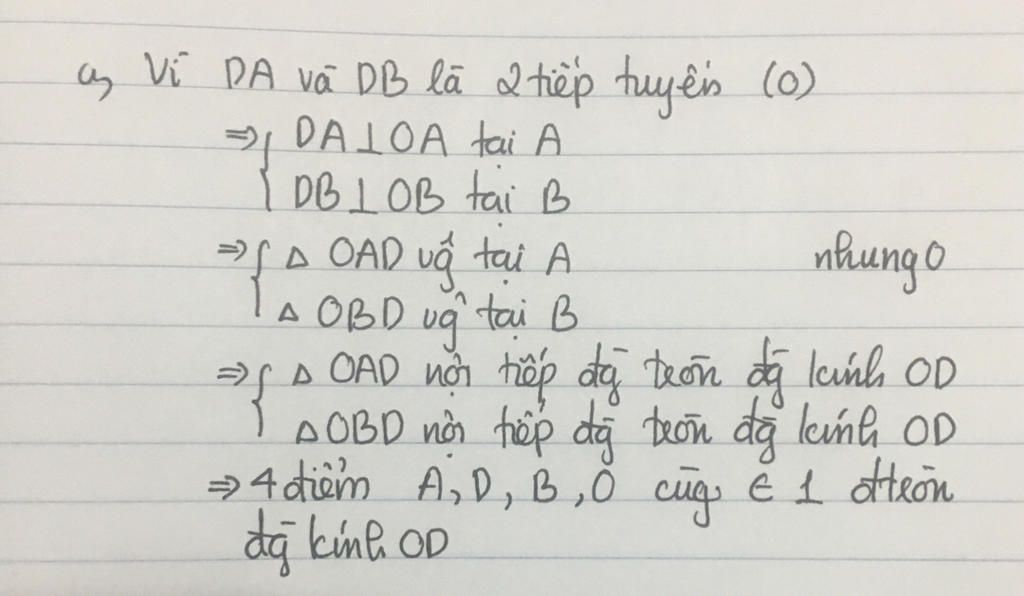 a, Vì DA và DB là 2 tiếp tuyến (O)
⇒ { DA ⊥ OA tại A
DB ⊥ OB tại B
⇒ { Δ OAD vg tại A nhung0
Δ OBD vg tại B
⇒ { Δ OAD nội tiếp đg tròn đg kính OD
Δ OBD nội tiếp đg tròn đg kính OD
⇒ 4 điểm A, D, B, O cùg ∈ 1 đtròn
đg kính OD